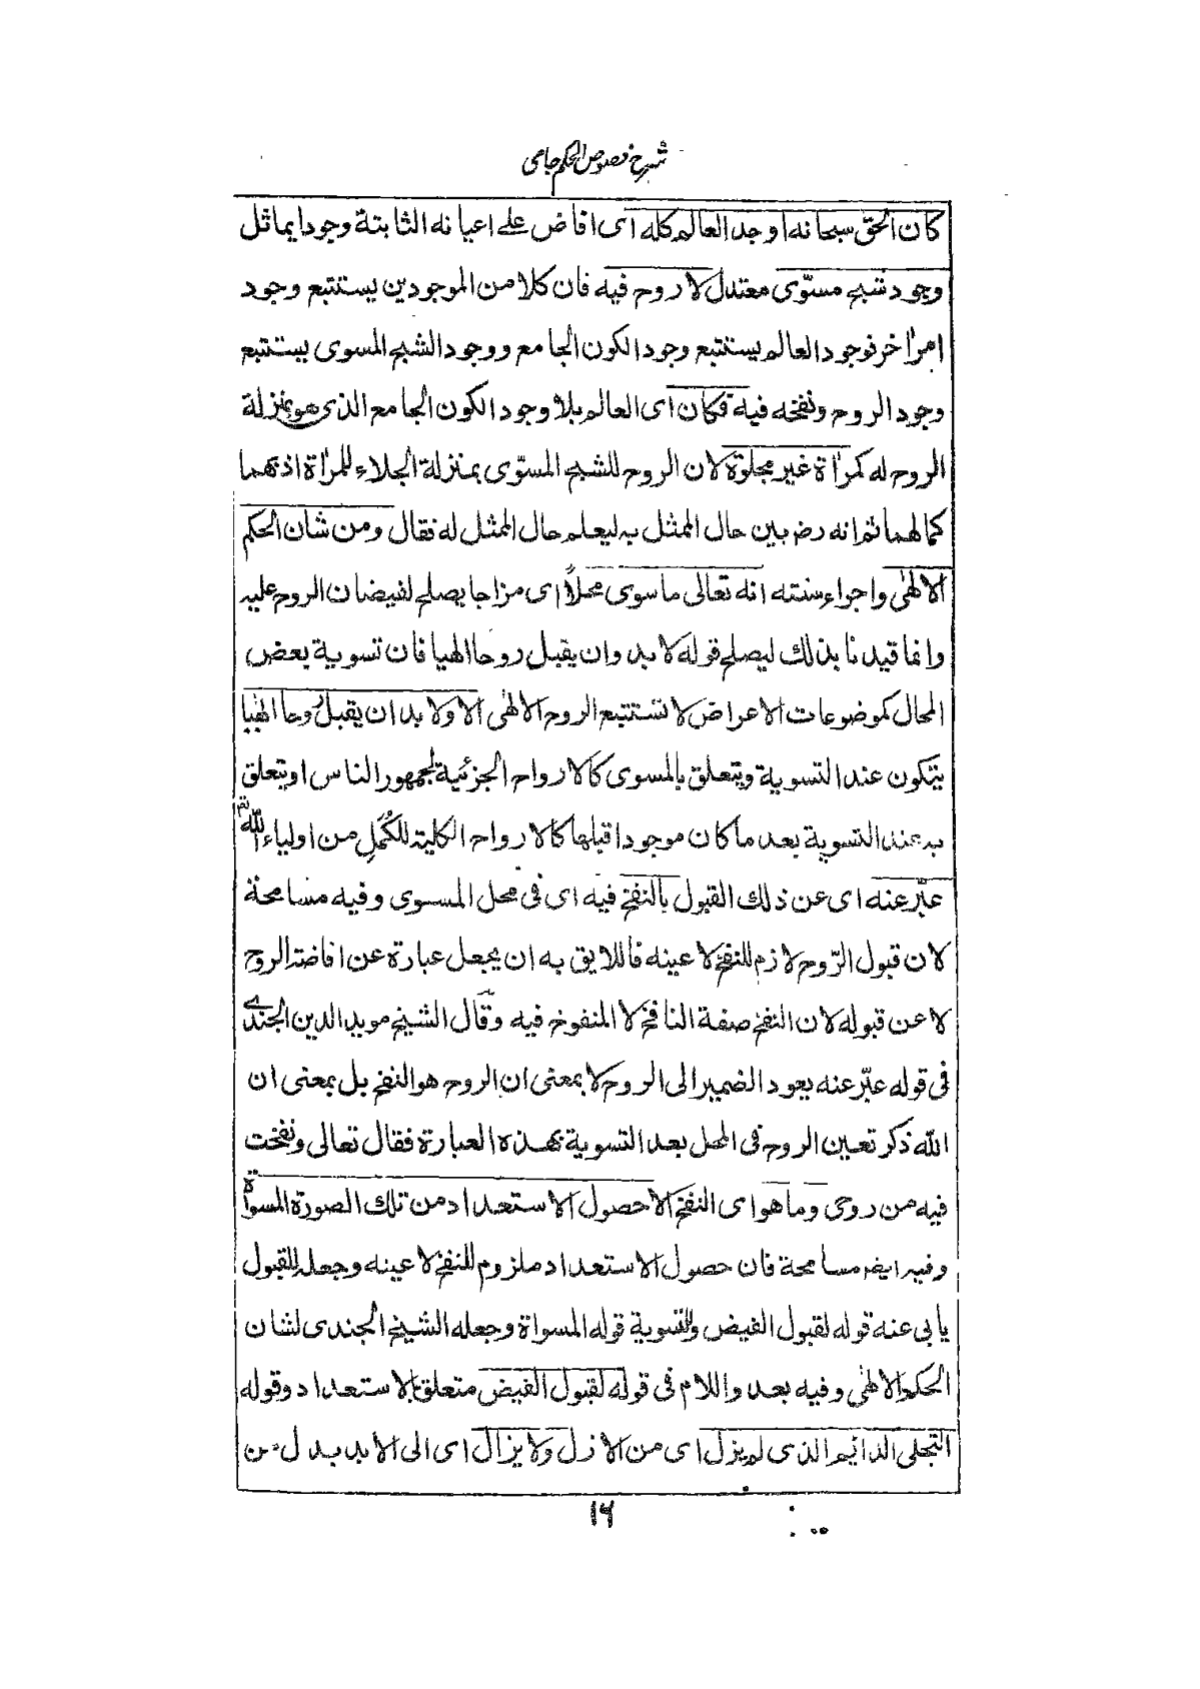 شرح فصوص الحكم جامى
كان الحق سبحانه اوجد العالم كله اى افاض على اعيانه الثابتة وجودا يماثل
وجود شبح مسوّى معتدل لا روح فيه فان كلا من الموجودين يستتبع وجود
امرا خر فوجود العالم يستتبع وجود الكون الجامع ووجود الشبح المسوى يستتبع
وجود الروح ونفخه فيه فكان اى العالم بلا وجود الكون الجامع الذى هو بمنزلة
الروح له كمرآة غير مجلوة لان الروح للشبح المسوّى بمنزلة الجلاء للمرآة اذ تهما
كمالهما ثم انه رضـ بين حال الممثل به ليعلم حال الممثل له فقال ومن شان الحكم
الالهى واجراء سنته انه تعالى ما سوى محلا اى مزاجا يصلح لفيضان الروح عليه
وانما قيدنا بذلك ليصلح قوله لا بد وان يقبل روحا الهيا فان تسوية بعض
المحال كموضوعات الاعراض لا تستتبع الروح الالهى الا ولا بد ان يقبل روحا الهيا
يتكون عند التسوية ويتعلق بالمسوى كالارواح الجزئية لجمهور الناس او يتعلق
به عند التسوية بعد ما كان موجودا قبلها كالارواح الكلية للكُمَّلِ من اولياء الله تم
عبّر عنه اى عن ذلك القبول بالنفخ فيه اى فى محل المسوى وفيه مسامحة
لان قبول الرّوح لازم للنفخ لا عينه فاللايق به ان يجعل عبارة عن افاضة الروح
لا عن قبوله لان النفخ صفة النافخ لا المنفوخ فيه وقال الشيخ مويد الدين الجندى
فى قوله عبّر عنه يعود الضمير الى الروح لا بمعنى ان الروح هو النفخ بل بمعنى ان
الله ذكر تعين الروح فى المحل بعد التسوية بهذه العبارة فقال تعالى ونفخت
فيه من روحى وما هو اى النفخ الا حصول الاستعداد من تلك الصورة المسواة
وفيه ايضـ مسامحة فان حصول الاستعداد ملزوم للنفخ لا عينه وجعله للقبول
يابى عنه قوله لقبول الفيض وللتسوية قوله المسواة وجعله الشيخ الجندى لشان
الحكم الالهى وفيه بعد واللام فى قوله لقبول الفيض متعلق بالاستعداد وقوله
التجلى الدائم الذى لم يزل اى من الازل ولا يزال اى الى الابد بدل من
١٦